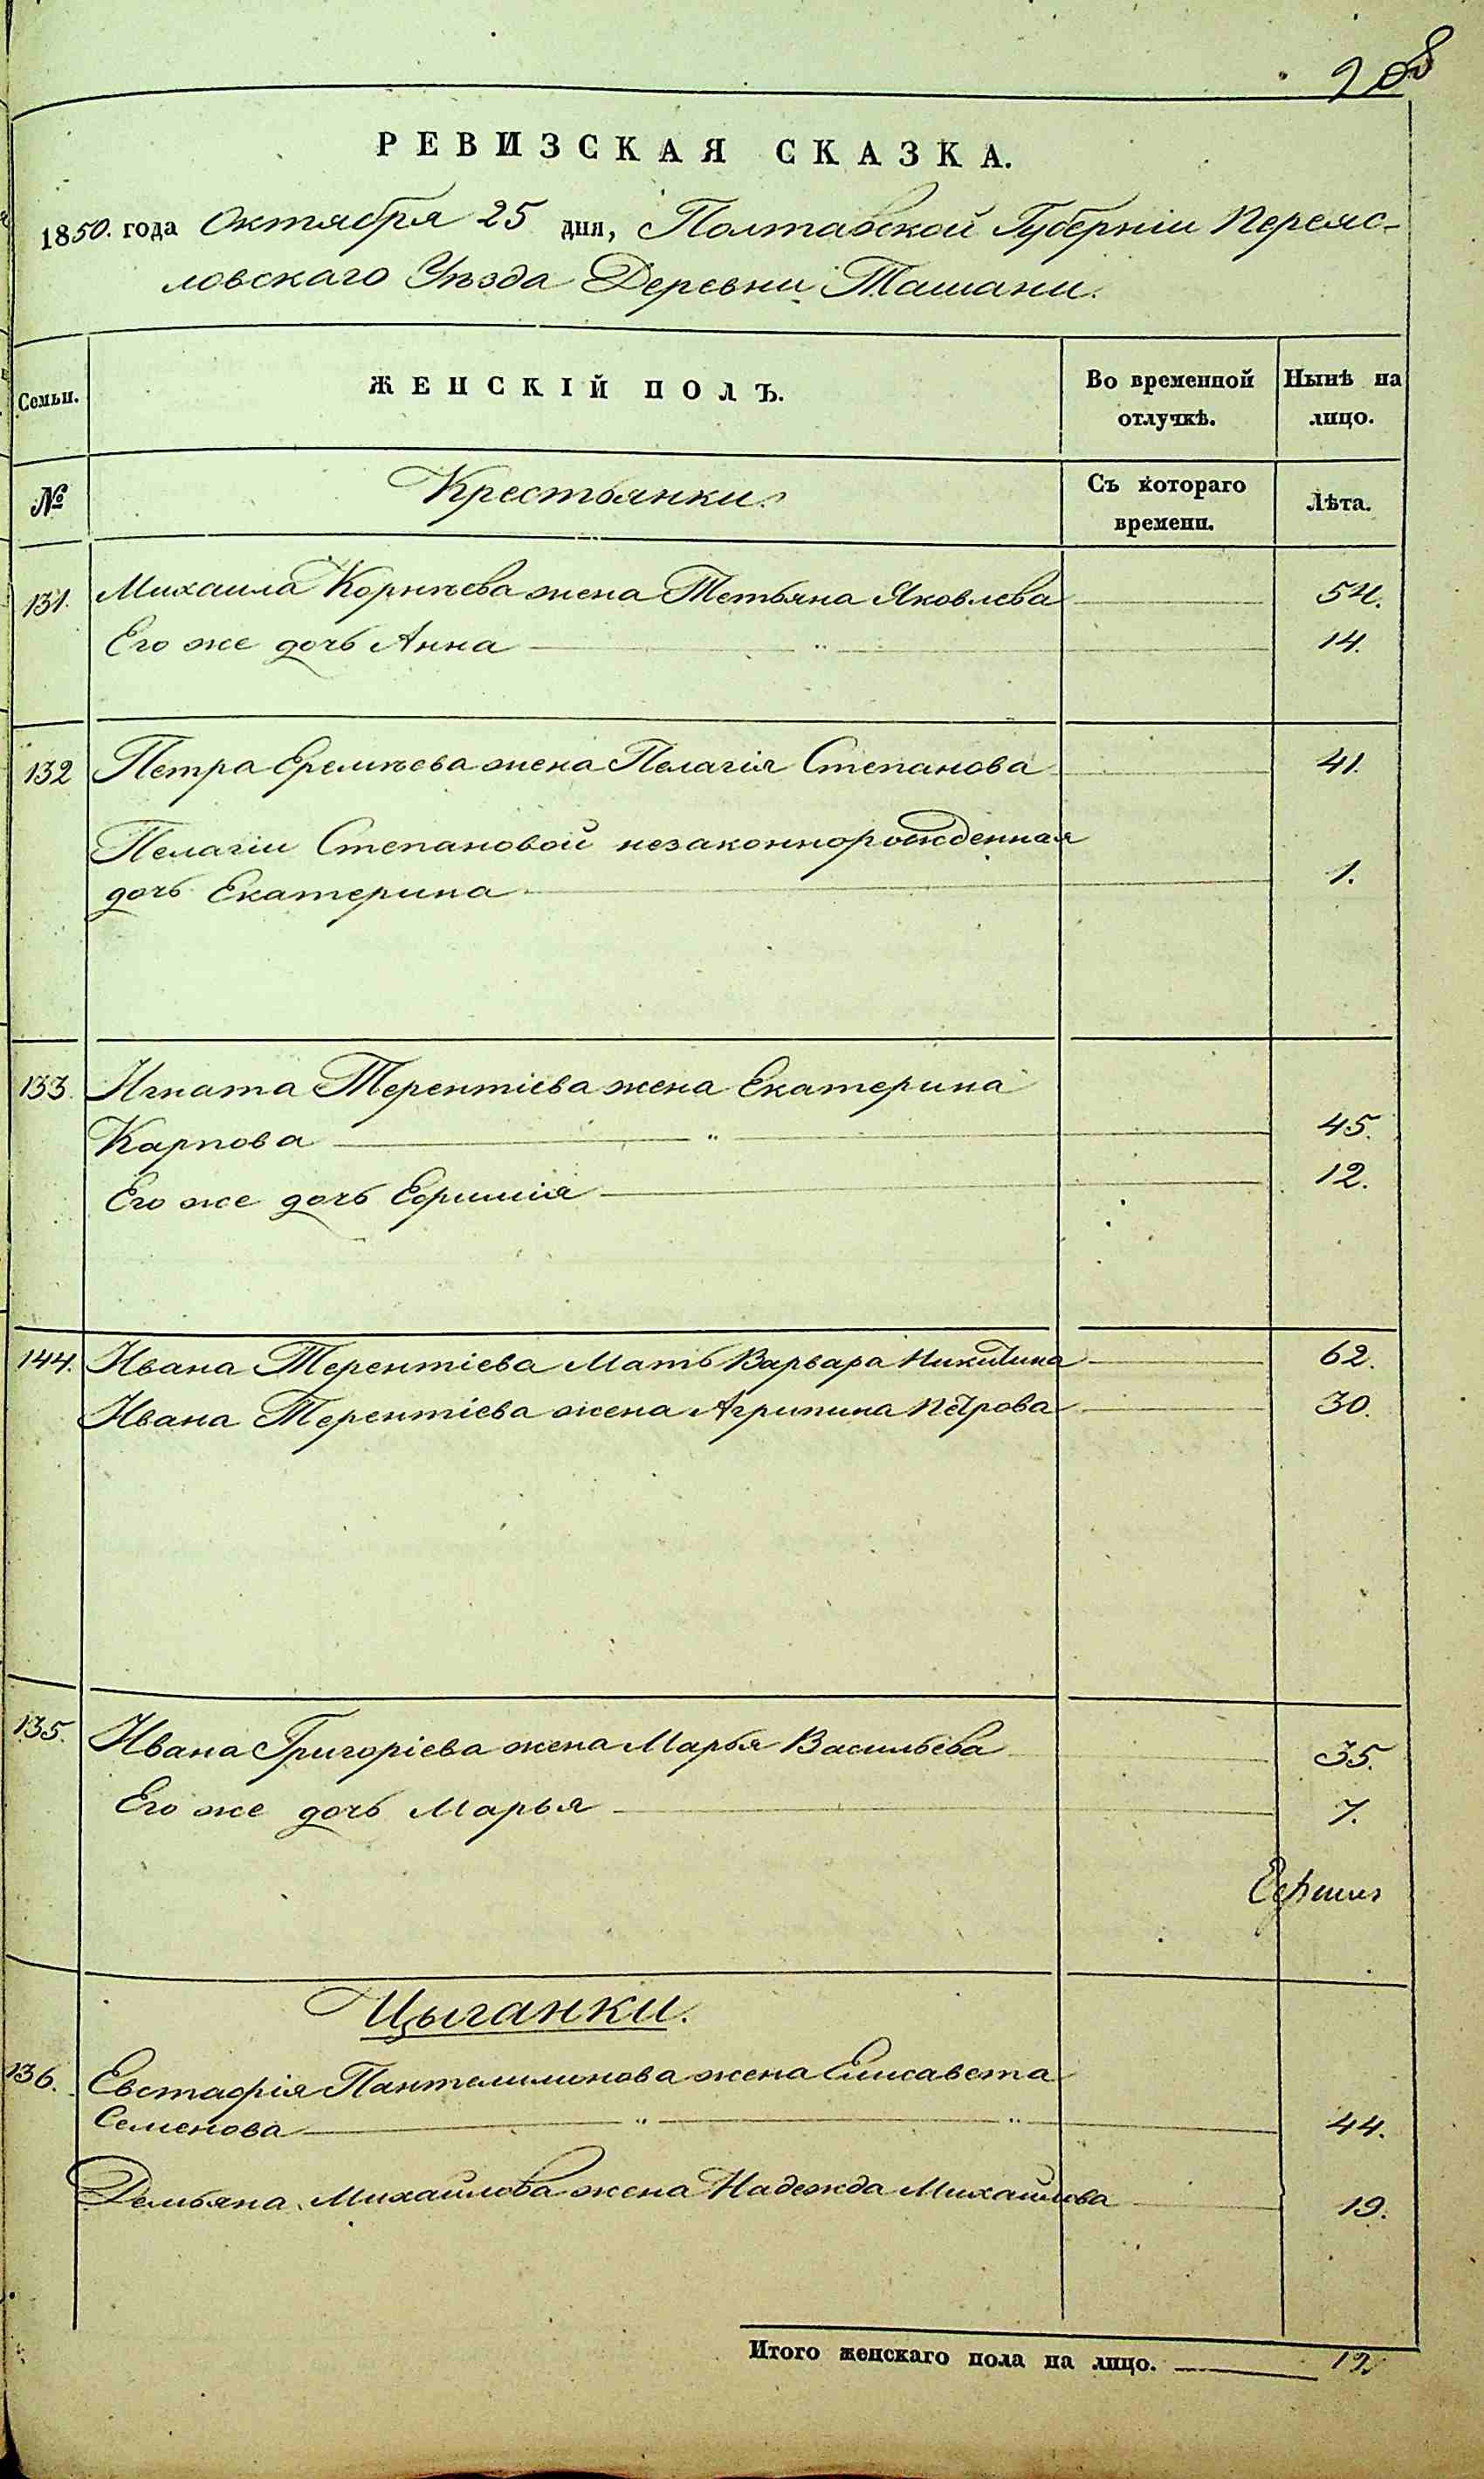 908
РЕВИЗСКАЯ СКАЗКА.
1850. года Октября 25 дня, Полтавской Губерніи Переяс-
ловскаго Уѣзда Деревни Ташани.
Семьи.
ЖЕНСКІЙ ПОЛЪ.
Во временной отлучкѣ.
Нынѣ на лицо.
№
Крестьянки.
Съ котораго времени.
Лѣта.
131. Михаила Корнѣева жена Тетьяна Яковлева 54.
Его же дочь Анна " 14.
132 Петра Еремѣева жена Пелагія Степанова 41.
Пелагіи Степановой незаконнорожденная
дочь Екатерина 1.
133. Игната Терентіева жена Екатерина
Карпова " 45.
Его же дочь Ефимія 12.
144. Ивана Терентіева Мать Варвара Никитина 62.
Ивана Терентіева жена Агрипина Петрова 30.
135. Ивана Григоріева жена Марья Васильева 35.
Его же дочь Марья 7.
Цыганки.
136. Евстафія Пантелимонова жена Елисавета
Семенова " " 44.
Демьяна Михайлова жена Надежда Михайлова 19.
Итого женскаго пола на лицо. 12